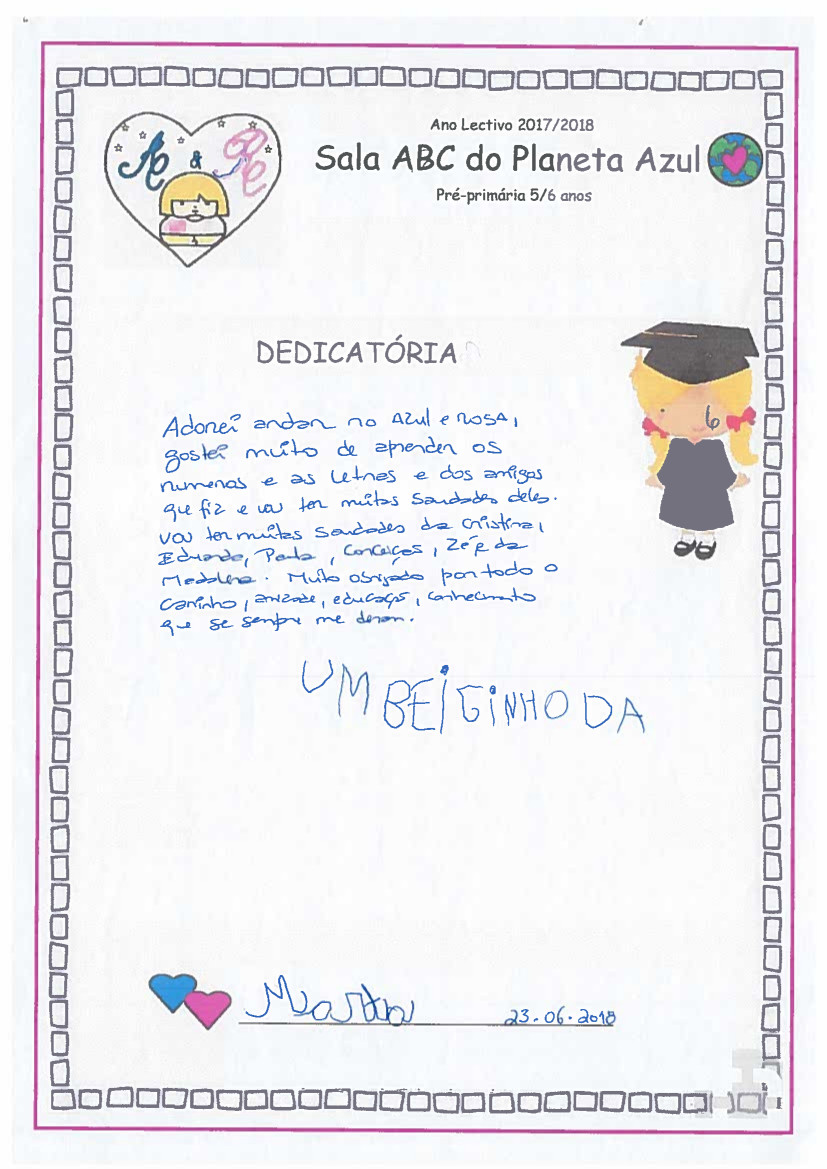 Ano Lectivo 2017/2018
Sala ABC do Planeta Azul
Pré-primária 5/6 anos
A &
DEDICATÓRIA
Adorei andar no Azul e ROSA,
gostei muito de aprender os
numeros e as letras e dos amigos
que fiz e vou ter muitas saudades deles.
vou ter muitas saudades da Cristina,
Eduarda, Paula, Conceição, Zé e da
Madalena. Muito obrigado por todo o
carinho, amizade, educação, conhecimento
que se sempre me deram.
UM BEIGINHO DA
Marta
23.06.2018